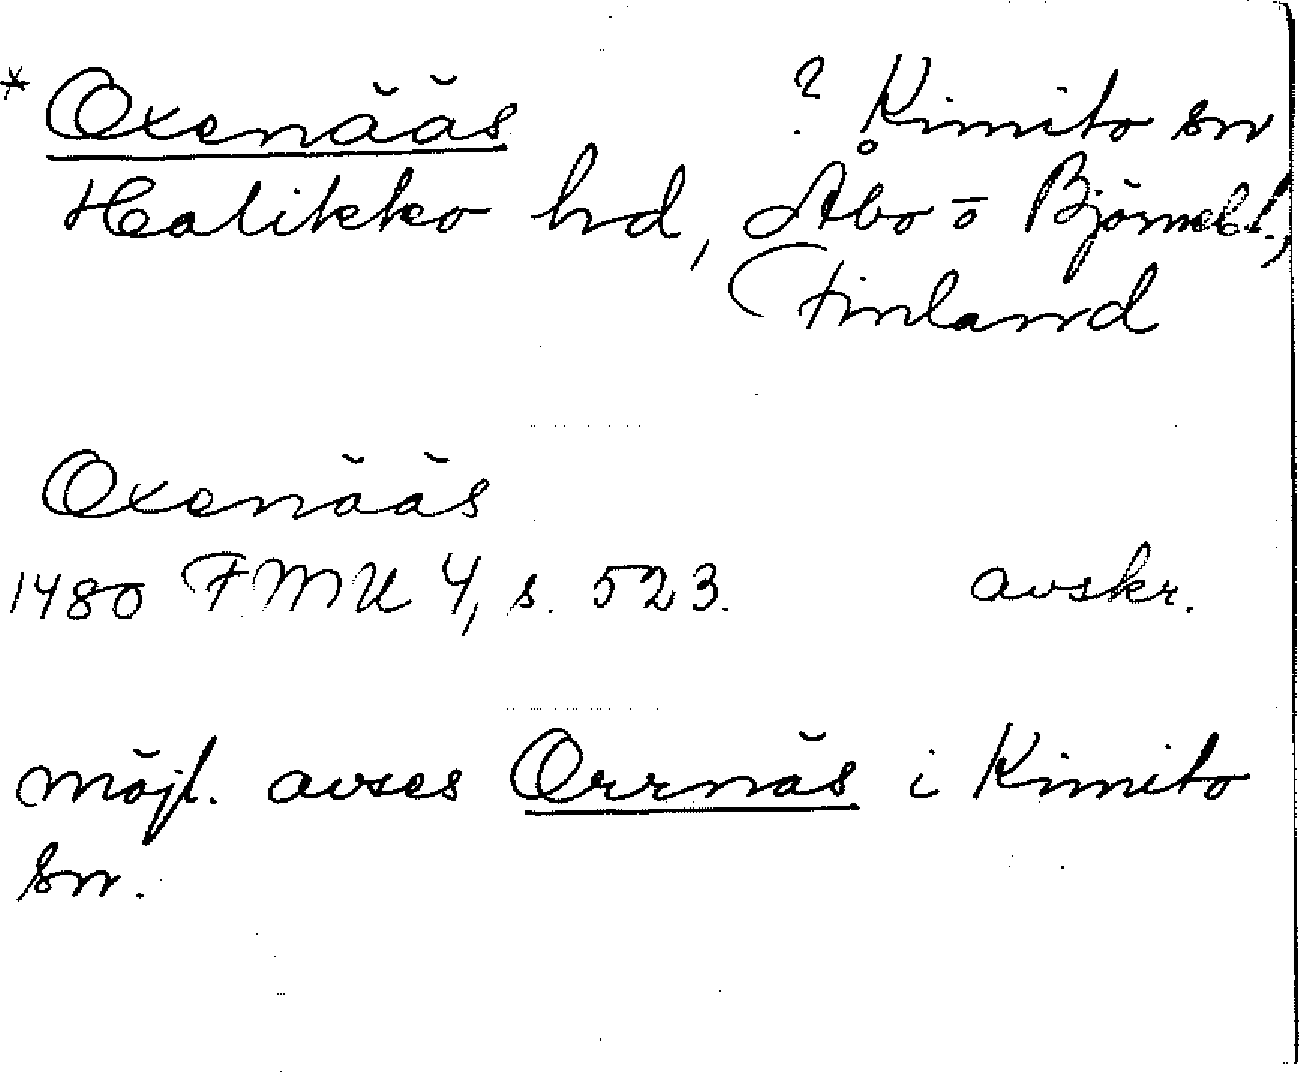 * Oxenääs ? Kimito sn
Halikko hd, Åbo o Björneb.l.,
Finland
Oxenääs
1480 FMU 4, s. 523. avskr.
möjl. avses Orrnäs i Kimito
sn.